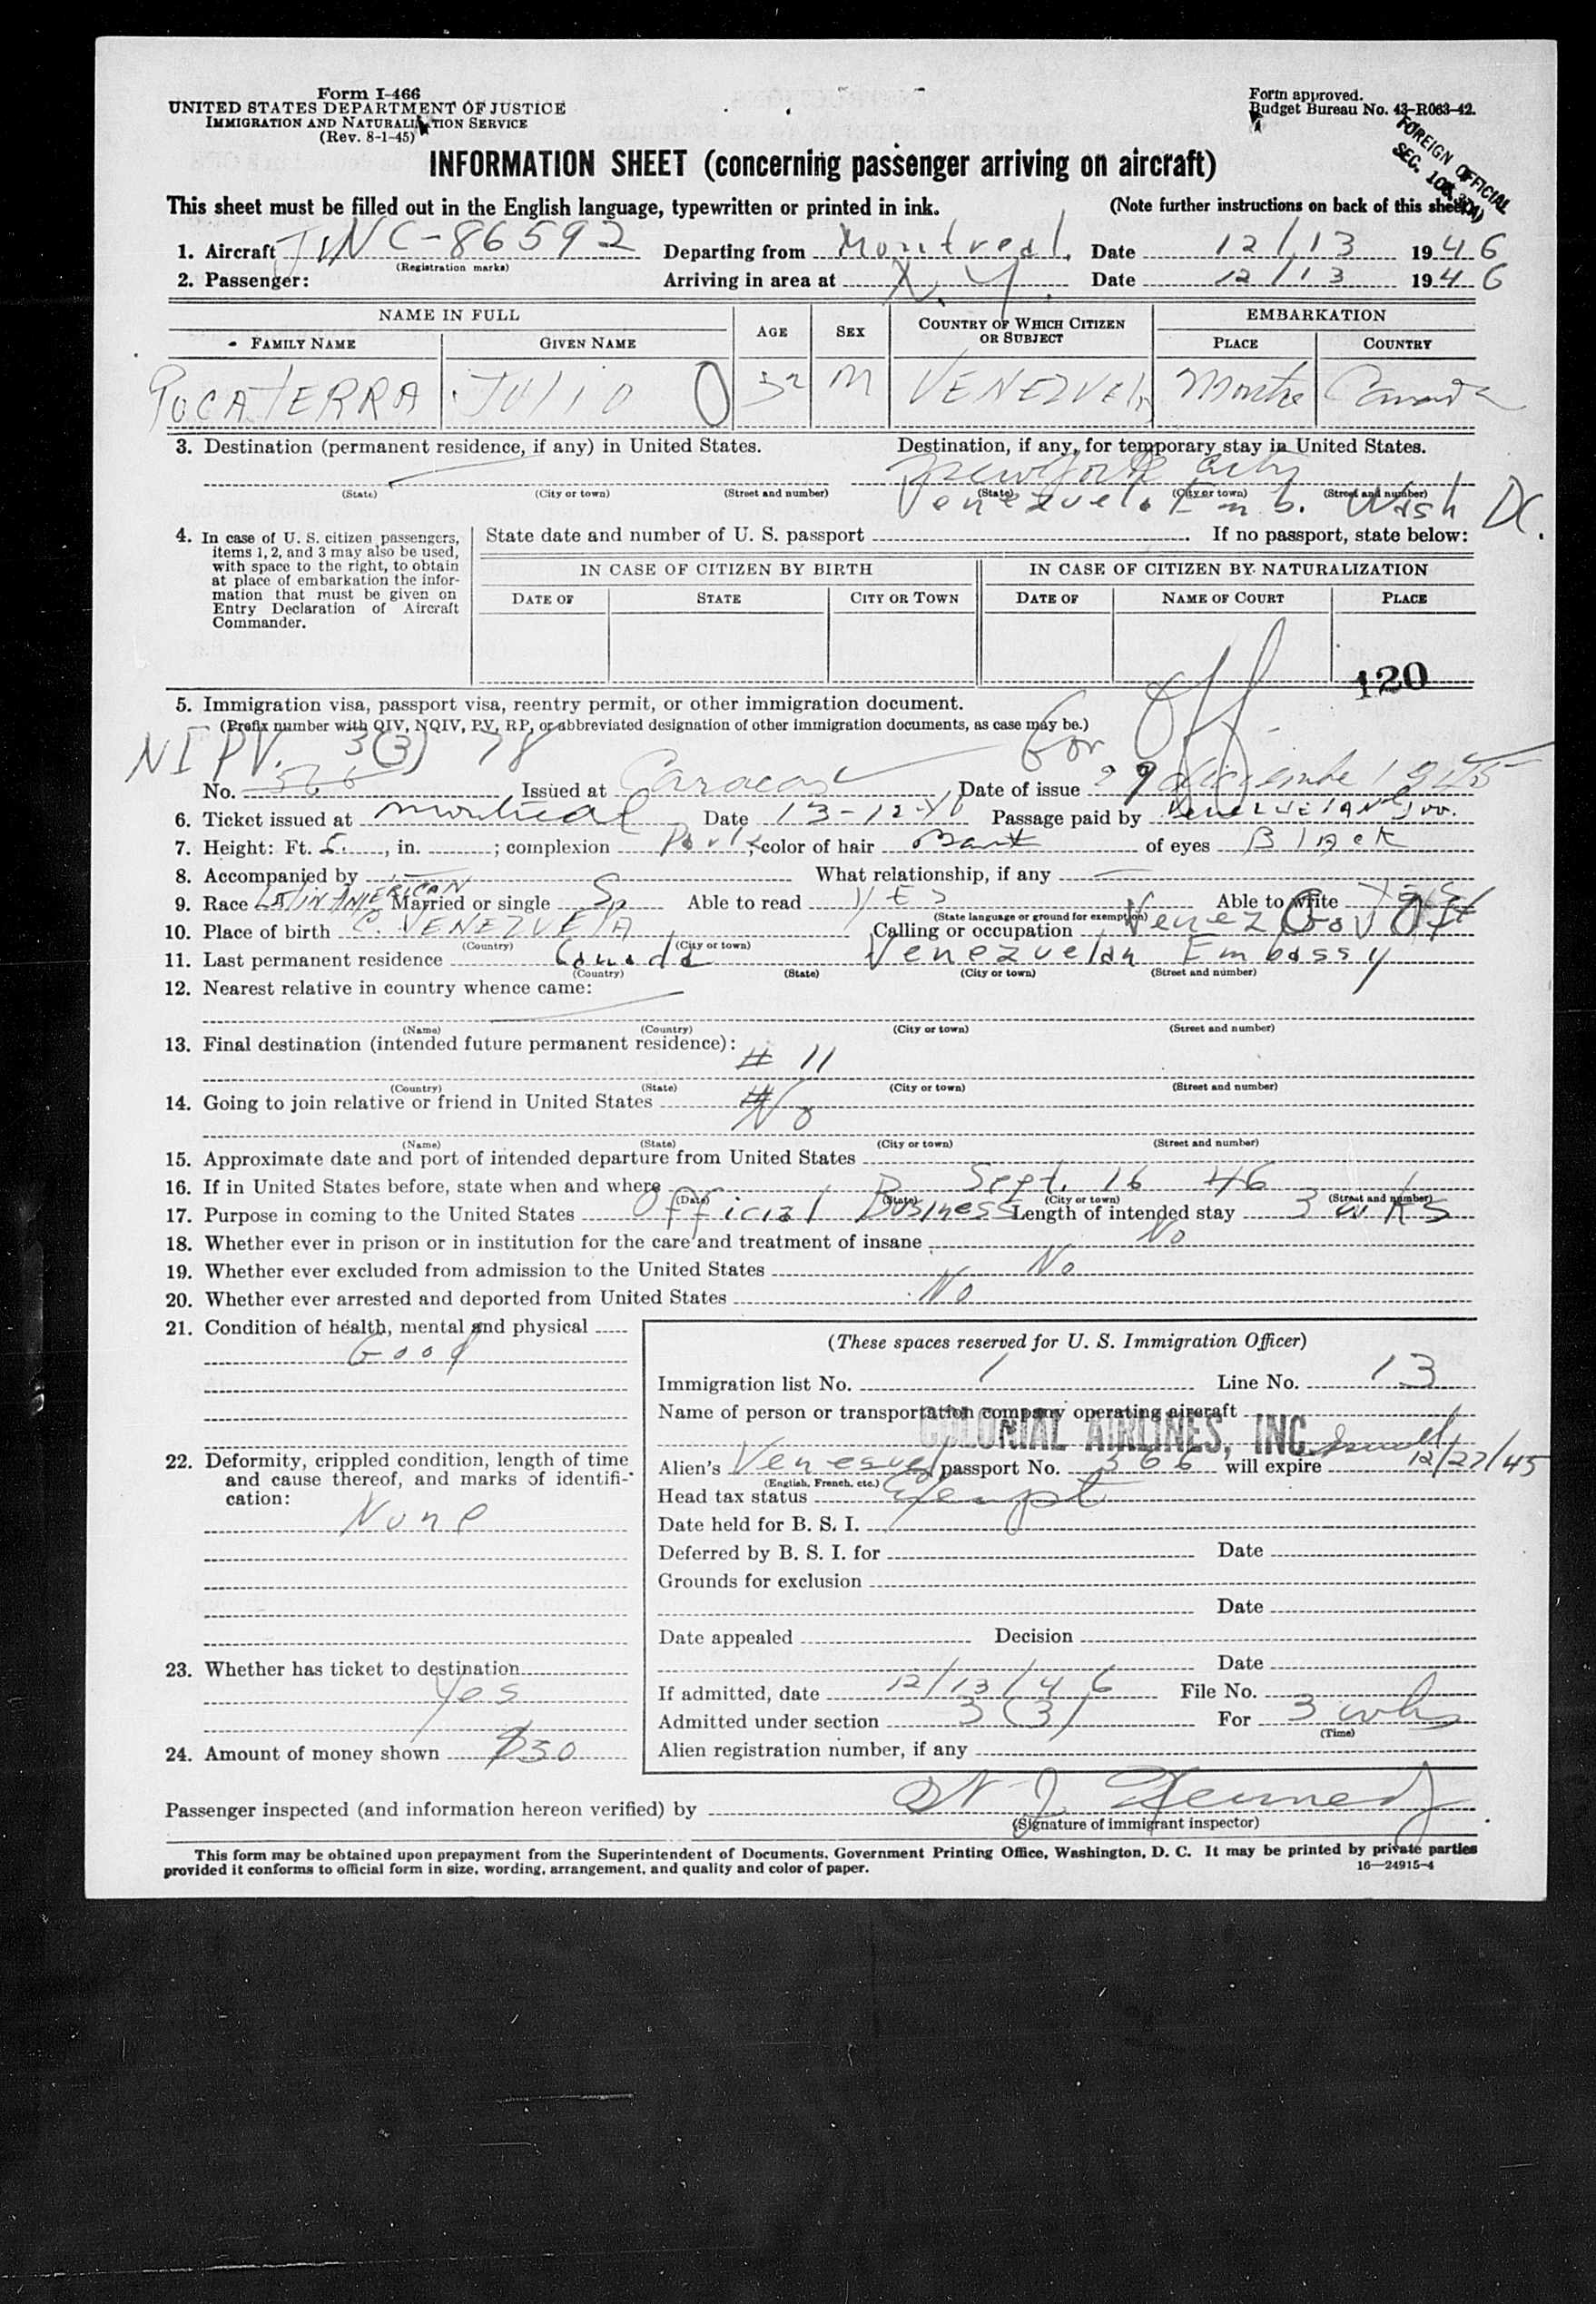 Form I-466
UNITED STATES DEPARTMENT OF JUSTICE
IMMIGRATION AND NATURALIZATION SERVICE
(Rev. 8-1-45)
Form approved.
Budget Bureau No. 43-R063-42.
FOREIGN OFFICIAL
INFORMATION SHEET (concerning passenger arriving on aircraft)
This sheet must be filled out in the English language, typewritten or printed in ink. (Note further instructions on back of this sheet)
1. Aircraft NC-86592 Departing from Montreal. Date 12/13 1946
(Registration marks)
2. Passenger: Arriving in area at N.Y. Date 12/13 1946
NAME IN FULL AGE SEX COUNTRY OF WHICH CITIZEN OR SUBJECT EMBARKATION
FAMILY NAME GIVEN NAME PLACE COUNTRY
POCATERRA JULIO O 32 M VENEZUELA Montre Canada
3. Destination (permanent residence, if any) in United States. Destination, if any, for temporary stay in United States.
New York City
(State) (City or town) (Street and number) (State) (City or town) (Street and number)
Venezuela Emb. Wash DC.
4. In case of U. S. citizen passengers, items 1, 2, and 3 may also be used, with space to the right, to obtain at place of embarkation the information that must be given on Entry Declaration of Aircraft Commander.
State date and number of U. S. passport . If no passport, state below:
IN CASE OF CITIZEN BY BIRTH IN CASE OF CITIZEN BY NATURALIZATION
DATE OF STATE CITY OR TOWN DATE OF NAME OF COURT PLACE
120
5. Immigration visa, passport visa, reentry permit, or other immigration document.
(Prefix number with QIV, NQIV, PV, RP, or abbreviated designation of other immigration documents, as case may be.)
NIPV. 3(3) 78 Gov Off
No. 366 Issued at Caracas Date of issue 29 diciembre 1945
6. Ticket issued at Montreal Date 13-12-46 Passage paid by Venezuelan Gov.
7. Height: Ft. 5, in. ; complexion Dark; color of hair Dark of eyes Black
8. Accompanied by — What relationship, if any —
9. Race LATIN AMERICAN Married or single S Able to read YES Able to write Yes
(State language or ground for exemption)
10. Place of birth C. VENEZUELA Calling or occupation Venez Gov Off
(Country) (City or town)
11. Last permanent residence Canada Venezuelan Embassy
(Country) (State) (City or town) (Street and number)
12. Nearest relative in country whence came:
(Name) (Country) (City or town) (Street and number)
13. Final destination (intended future permanent residence):
# 11
(Country) (State) (City or town) (Street and number)
14. Going to join relative or friend in United States No
(Name) (State) (City or town) (Street and number)
15. Approximate date and port of intended departure from United States
16. If in United States before, state when and where Sept. 16 46
(Date) (State) (City or town) (Street and number)
17. Purpose in coming to the United States Official Business Length of intended stay 3 wks
18. Whether ever in prison or in institution for the care and treatment of insane No
19. Whether ever excluded from admission to the United States No
20. Whether ever arrested and deported from United States No
21. Condition of health, mental and physical
Good
22. Deformity, crippled condition, length of time and cause thereof, and marks of identification:
None
23. Whether has ticket to destination
Yes
24. Amount of money shown $30
(These spaces reserved for U. S. Immigration Officer)
Immigration list No. 1 Line No. 13
Name of person or transportation company operating aircraft
COLONIAL AIRLINES, INC.
Alien's Venezuel passport No. 366 will expire 12/27/45
(English, French, etc.)
Head tax status Exempt
Date held for B. S. I.
Deferred by B. S. I. for Date
Grounds for exclusion
Date
Date appealed Decision
Date
If admitted, date 12/13/46 File No.
Admitted under section 3(3) For 3 wks
(Time)
Alien registration number, if any
Passenger inspected (and information hereon verified) by J Kennedy
(Signature of immigrant inspector)
This form may be obtained upon prepayment from the Superintendent of Documents, Government Printing Office, Washington, D. C. It may be printed by private parties
provided it conforms to official form in size, wording, arrangement, and quality and color of paper. 16—24915-4